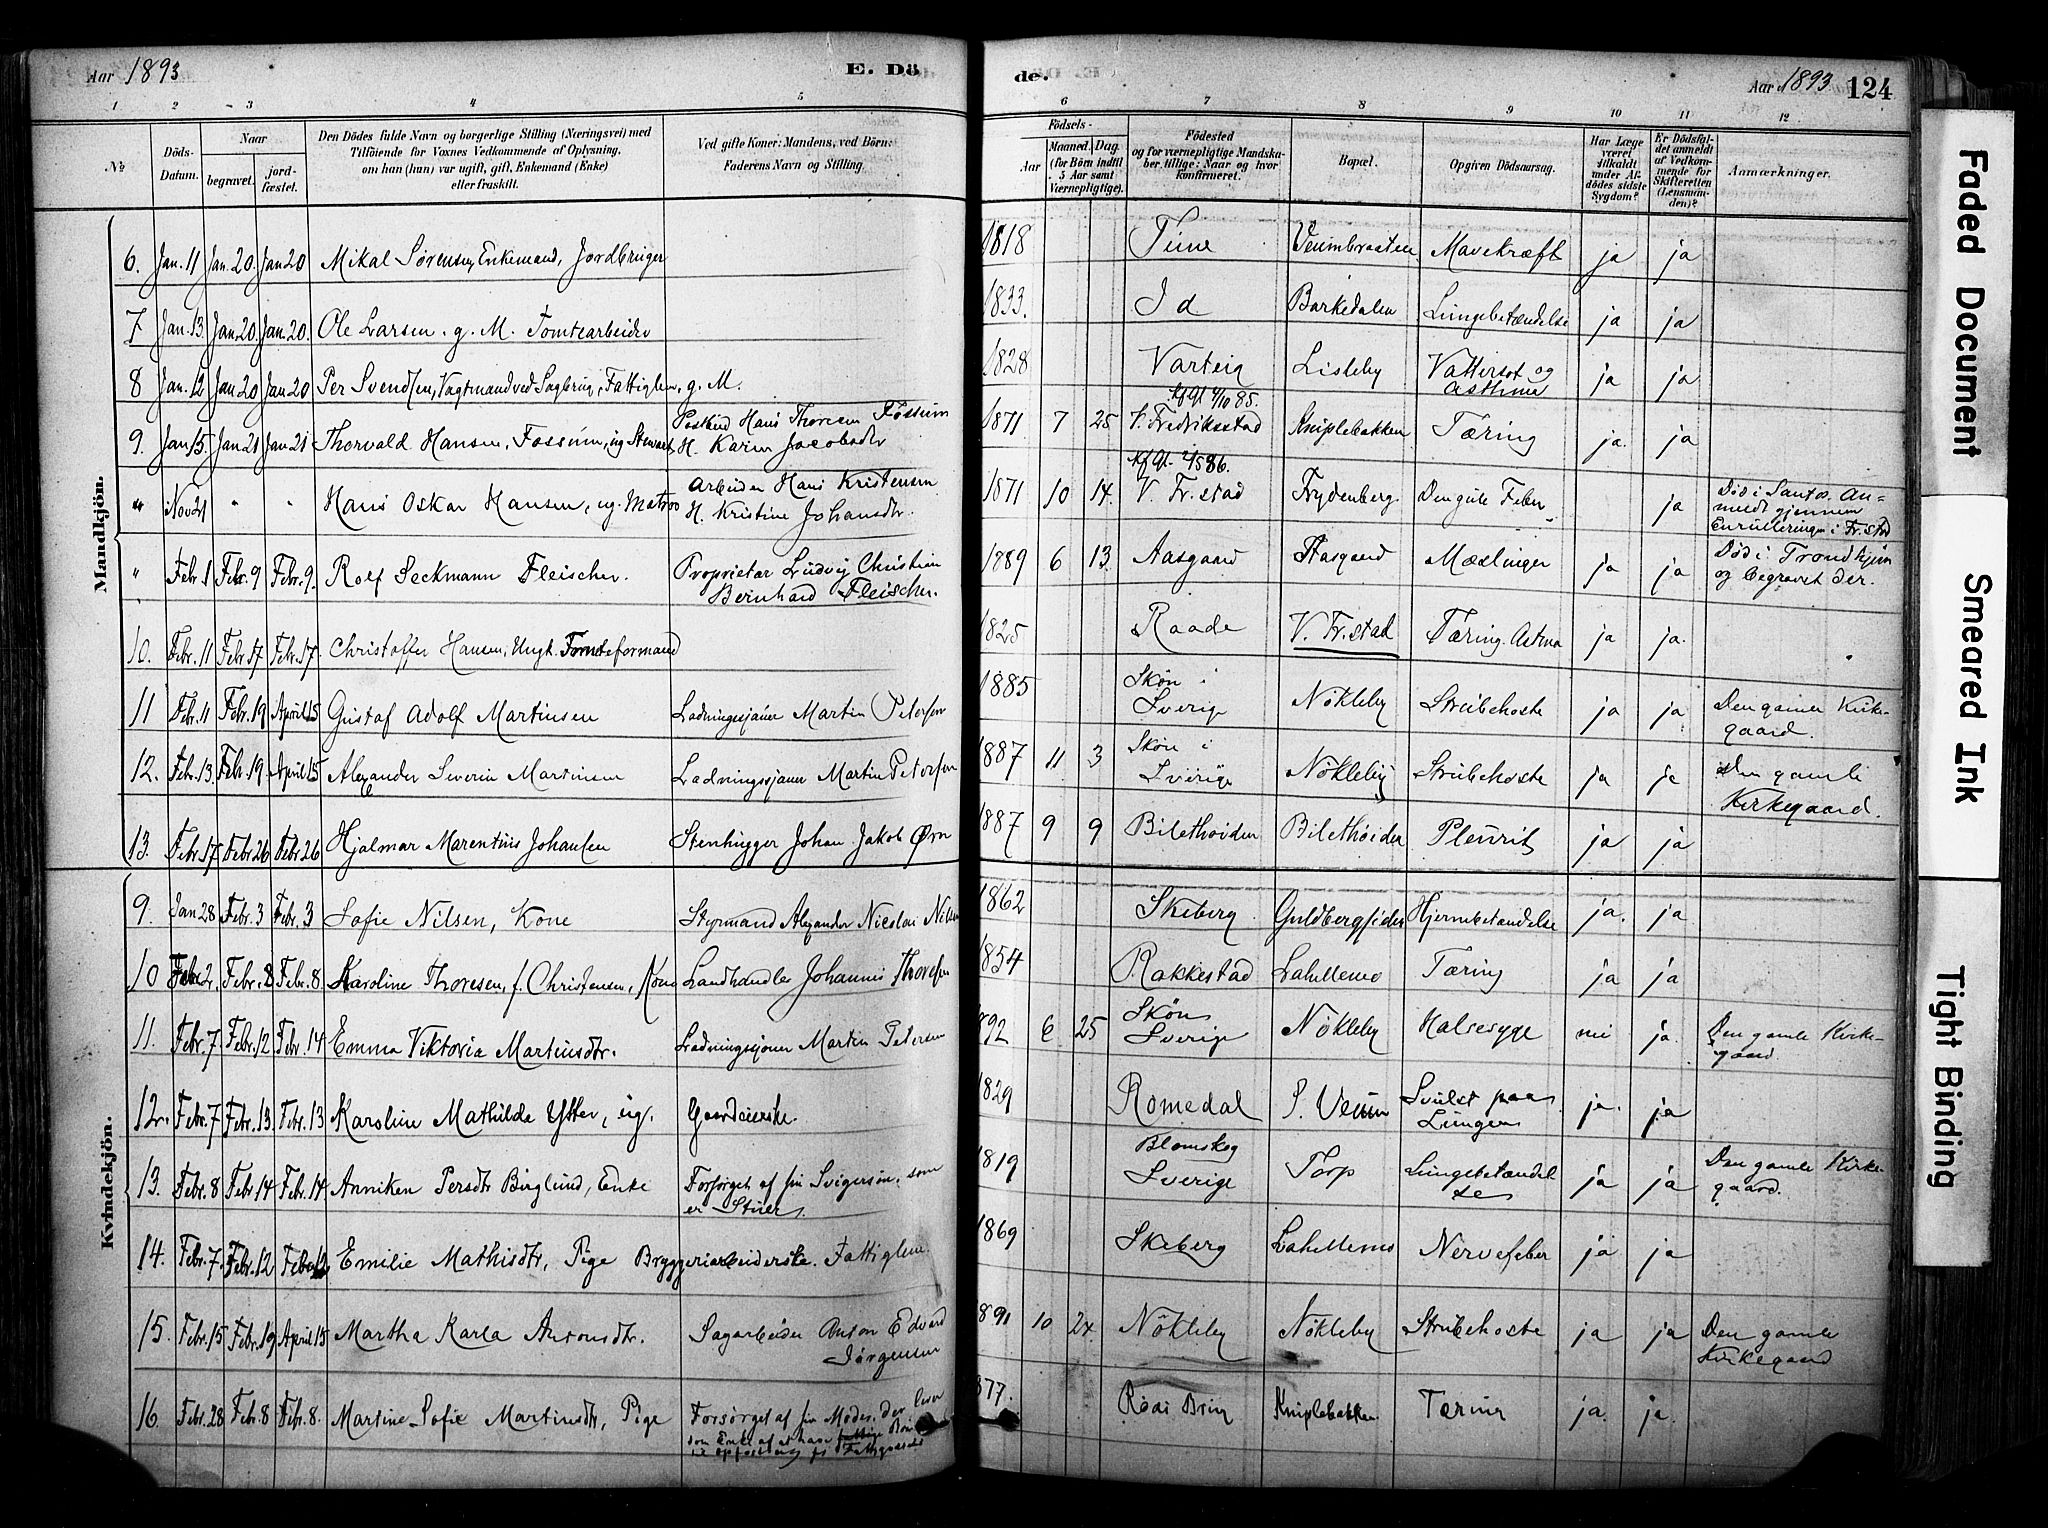 Aar 1893 E. Dö
de. Aar 1893 124
1 2 3 4 5 6 7 8 9 10 11 12
No Döds-Datum. Naar begravet. jord-fæstet. Den Dödes fulde Navn og borgerlige Stilling (Næringsvei) med Tilföiende for Voxnes Vedkommende af Oplysning, om han (hun) var ugift, gift, Enkemand (Enke) eller fraskilt. Ved gifte Koner: Mandens, ved Börn: Faderens Navn og Stilling. Födsels- Aar Maaned. Dag. (for Börn indtil 5 Aar samt Værnepligtige). Födested og for værnepligtige Mandskaber tillige: Naar og hvor konfirmeret. Bopæl. Opgiven Dödsaarsag. Har Læge været tilkaldt under Afdödes sidste Sygdom? Er Dödsfaldet anmeldt af Vedkommende for Skifteretten (Lensmanden)? Anmærkninger.
Mandkjön.
6. Jan. 11 Jan. 20. Jan 20 Mikal Sørensen, Enkemand, Jordbruger 1818 Tune Veumbraaten Mavekræft ja ja
7 Jan. 13. Jan. 20. Jan. 20. Ole Larsen. g. M. Tomtearbeider 1833. Id Barkedalen Lungebetændelse ja ja
8 Jan. 12 Jan. 20 Jan. 20 Per Svendsen, Vagtmand ved Sagbrug, Fattiglem, g. M. 1828 Varteig Lisleby Vattersot og Asthma ja ja
9. Jan 15. Jan 21 Jan 21 Thorvald Hansen, Fossum, ug Postbud Hans Thoresen Fossum H. Karin Jacobsdtr 1871 7 25 V. Fredriksstad Kniplebakken Tæring ja. ja
" Nov 21 " " Hans Oskar Hansen, ug. Matros Arbeider Hans Kristensen H. Kristine Johansdtr. 1871 10 14. V. Fr.stad Trydenberg. Den gule Feber ja Död i Santos. Anmeldt gjennem Enrulleringen i Fr.stad
" Febr. 1 Febr. 9 Febr. 9. Rolf Seckmann Fleischer. Proprietær Ludvig Christian Bernhard Fleischer. 1789 6 13. Aasgaard Aasgaard Mæslinger ja ja Död i Trondhjem og begravet der.
10. Febr. 11 Febr. 17 Febr. 17 Christoffer Hansen, Ungk. Tomteformand 1825 Raade V. Fr.stad Tæring. Astma ja ja.
11 Febr. 11 Febr. 19 April 15 Gustaf Adolf Martinsen Ladningssjauer Martin Petersen 1885 Skøn i Sverige Nökleby Strubehoste ja ja Den gamle Kirkegaard.
12. Febr. 13. Febr. 19 April 15 Alexander Severin Martinsen Ladningssjauer Martin Petersen 1887 11 3 Skøn i Sverige Nökleby Strubehoste ja ja Den gamle Kirkegaard.
13. Febr. 17 Febr 26 Febr 26 Hjalmar Marentius Johansen Stenhugger Johan Jakob Ørn 1887 9 9 Bilethöiden Bilethöiden Pleurit ja ja
Kvindekjön.
9. Jan 28 Febr. 3 Febr. 3 Sofie Nilsen, Kone Styrmand Alexander Nicolai Nilsen 1862 Skeberg Guldbergsiden Hjernebetændelse ja. ja
10 Febr 2. Febr. 8 Febr. 8 Karoline Thoresen, f. Christensen, Kone Landhandler Johannes Thoresen 1854 Rakkestad Lahellemo Tæring ja ja
11. Febr. 7 Febr. 12 Febr. 14 Emma Viktoria Martinsdtr. Ladningssjauer Martin Petersen 892 6 25 Skøn Sverige Nökleby Halsesyge nei ja Den gamle Kirkegaard.
12. Febr. 7 Febr. 13. Febr. 13 Karoline Mathilda Ytter, ug. Gaardeierske. 1829 Romedal S. Veum Svulst paa Lungen ja. ja
13. Febr. 8 Febr. 14 Febr. 14 Anniken Persdtr Berglund, Enke Forsørget af sin Svigersøn, som er Stuer. 1819 Blomskog Sverige Torp Lungebetændelse ja ja Den gamle Kirkegaard.
14. Febr. 7. Febr. 12 Febr. 12 Emilie Mathisdtr, Pige Bryggeriarbeiderske. Fattiglem. 1869 Skeberg Lahellemo Nervefeber ja ja
15. Febr. 15 Febr. 19 April 15 Martha Karla Antonsdtr. Sagarbeider Anton Edvard Jørgensen 891 10 24 Nökleby Nökleby Strubehoste ja ja Den gamle Kirkegaard
16. Febr. 28 Febr 8 Febr. 8. Martine Sofie Martinsdtr, Pige Forsørget af sin Moder, der lever som Enke af at have fattige Börn til opfostring fr Fattigvæsenet 877. Röds Brug Kniplebakken Tæring ja. ja.
Faded Document
Smeared Ink
Tight Binding